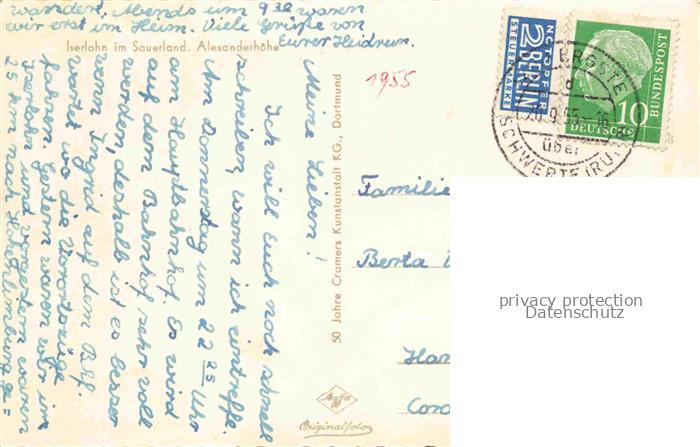 Meine Lieben!
Ich will Euch noch schnell
schreiben, wann ich eintreffe.
Am Donnerstag um 22 25 Uhr
am Hauptbahnhof. Es wird
auf dem Bahnhof sehr voll
werden, deshalb ist es besser
wenn Ingrid auf dem Bhf.
wartet wo die Vorortszüge
fahren. Gestern waren wir in
Iserlohn und vorgestern waren
25 km nach Hohenlimburg ge=
wandert. Abends um 9 30 waren
wir erst im Heim. Viele Grüße von
Eurer Heidrun.
Iserlohn im Sauerland. Alexanderhöhe
1955
50 Jahre Cramers Kunstanstalt KG., Dortmund
Agfa
Originalfoto
NOTOPFER
2 BERLIN
STEUERMARKE
10
DEUTSCHE
BUNDESPOST
ERGSTE
d
20.9.55-16
über
SCHWERTE (RU
Familie
Berta
Ha
Cor
privacy protection
Datenschutz